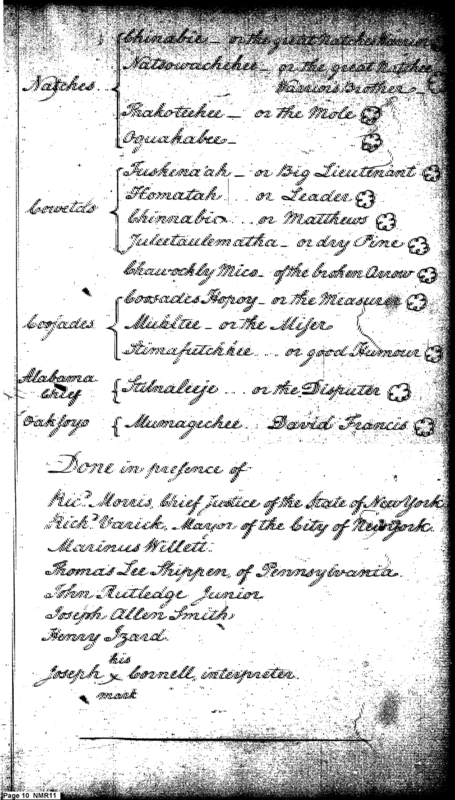 Chinabie – or the great Natches Warrior
Natsowachehee – or the great Natches
Natches
Warrior's Brother –
Thakoteehee – or the Mole
Oquakabee –
Tuskena'ah – or Big Lieutenant
Homatah ... or Leader
Cowetds
Chinnabie .... or Matthews
Juleetaulematha – or dry Pine
Chawockly Mico – of the broken Arrow
Coosades Hopoy – or the Measurer
Coosades
Muthtee – or the Miser
Stimafutchkee .... or good Humour
Alabama
Chief
Stilnaleeje .... or the Disputer
Oaksoyo
Mumagechee .. David Francis
Done in presence of
Ricd. Morris, Chief Justice of the State of New York.
Richd. Varick, Mayor of the City of New York.
Marinus Willett.
Thomas Lee Shippen, of Pennsylvania.
John Rutledge Junior
Joseph Allen Smith
Henry Izard
his
Joseph x Cornell, interpreter.
mark
Page 10 NMR11